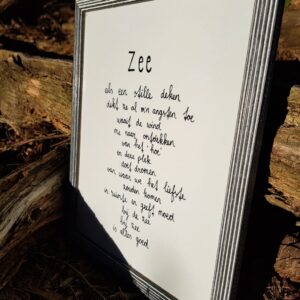 Zee
als een stille deken
dekt ze al m'n angsten toe
waait de wind
me naar ontdekken
van het 'hoe'
en deze plek
doet dromen
van waar we het liefste
zouden komen
ze geeft moed
bij de zee
bij zee
is alles goed